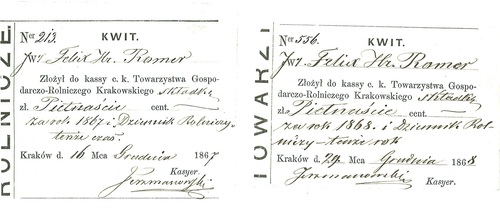 ROLNICZE
Ner 213. KWIT.
JWy Felix Hr. Romer
Złożył do kassy c. k. Towarzystwa Gospo-
darczo-Rolniczego Krakowskiego składkę
zł. Piętnaście cent. —
za rok 1867 i Dziennik Rolniczy
tenże czas.
Kraków d. 16 Mca Grudnia 1867
Kasyer.
TOWARZY
Ner 556. KWIT.
JWy Felix Hr Romer
Złożył do kassy c. k. Towarzystwa Gospo-
darczo-Rolniczego Krakowskiego składkę
zł. Piętnaście cent. —
za rok 1868. i Dziennik Rol-
niczy — tenże rok
Kraków d. 29 Mca Grudnia 1868
Kasyer.